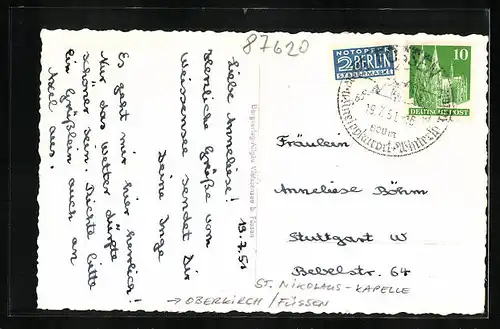 87620
19.7.51
Liebe Anneliese!
Herzliche Grüße vom
Weissensee sendet Dir
Deine Inge
Es geht mir hier herrlich!
Nur das Wetter dürfte
schöner sein. Richte bitte
ein Grüßlein auch an
Axel aus.
NOTOPFER
2 BERLIN
STEUERMARKE
10
DEUTSCHE POST
19.7.51
800 m
Fräulein
Anneliese Böhm
Stuttgart W
Bebelstr. 64
ST. NIKOLAUS-KAPELLE
→ OBERKIRCH/FÜSSEN